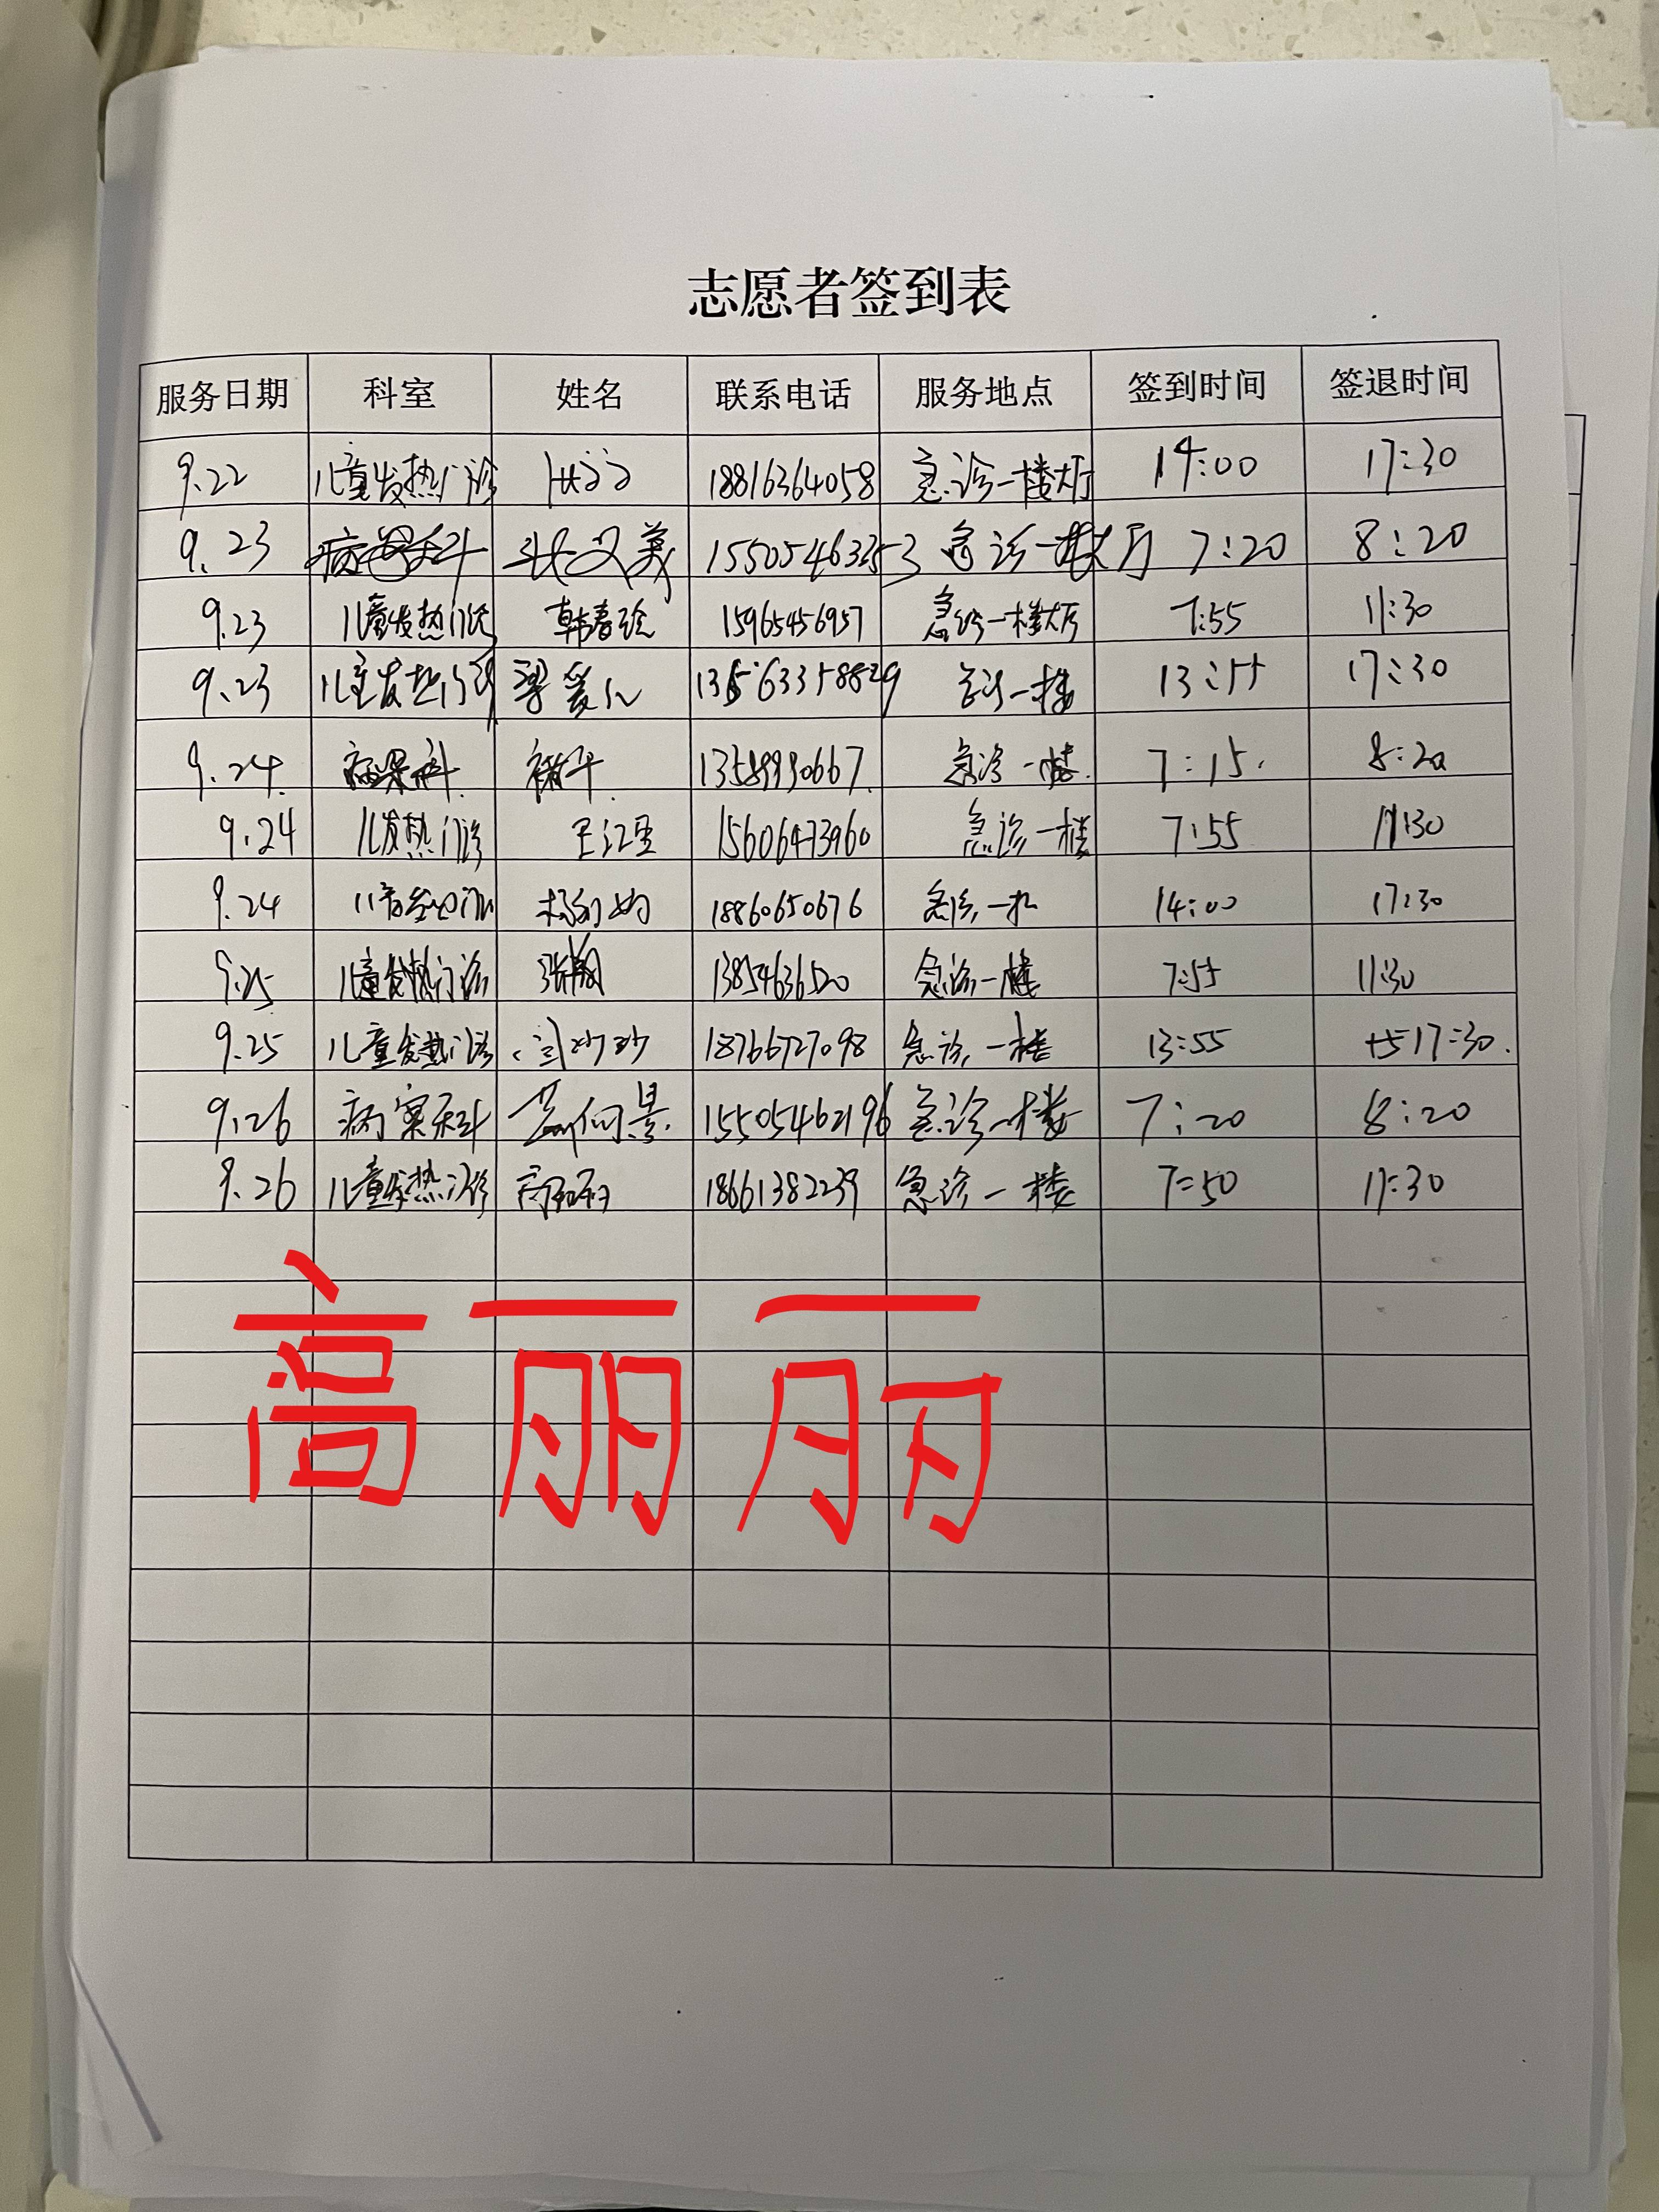 志愿者签到表
服务日期 科室 姓名 联系电话 服务地点 签到时间 签退时间
9.22 儿童发热门诊 18816364058 急诊一楼大厅 14:00 17:30
9.23 急诊一楼大厅 7:20 8:20
9.23 儿童发热门诊 韩春 15965456957 急诊一楼大厅 7:55 11:30
9.23 儿童发热门诊 梁爱 急诊一楼 13:55 17:30
9.24. 病案科. 褚平. 急诊一楼. 7:15. 8:20
9.24 儿发热门诊 王江 15606473960 急诊一楼 7:55 11:30
9.24 18860650676 急诊一 14:00 17:30
9.25 儿童发热门诊 张翔 13854636520 急诊一楼 7:55 11:30
9.25 儿童发热门诊 18766727098 急诊一楼 13:55 17:30.
9.26 病案科 15505462196 急诊一楼 7:20 8:20
9.26 儿童发热门诊 高丽丽 18661382239 急诊一楼 7:50 11:30
高丽丽